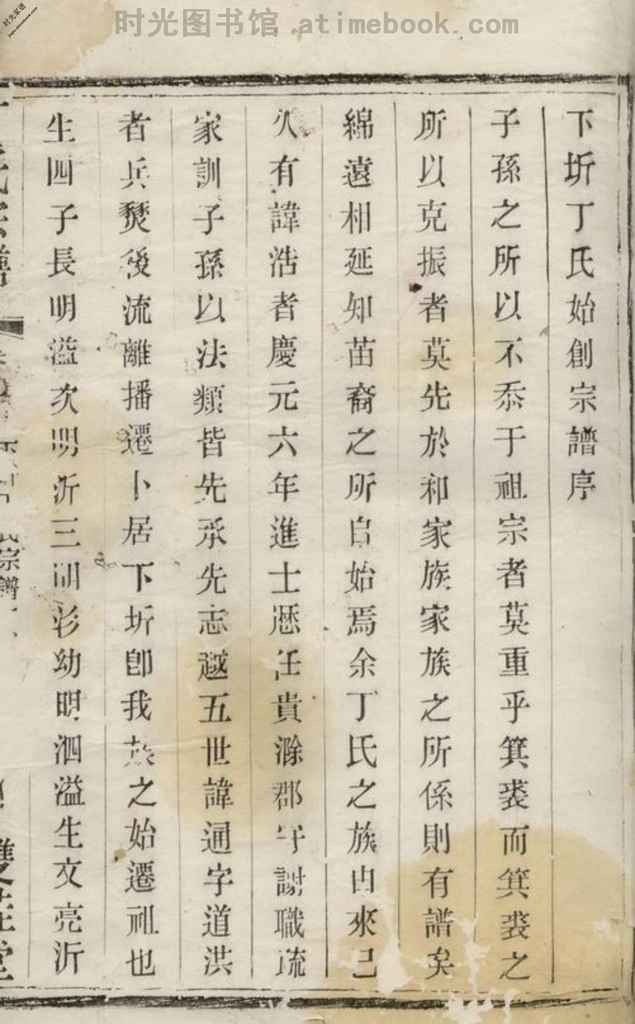 时光图书馆.atimebook.com
下圻丁氏始創宗譜序
子孫之所以不忝于祖宗者莫重乎箕裘而箕裘之
所以克振者莫先於和家族家族之所係則有譜矣
綿遠相延知苗裔之所自始焉余丁氏之族由來已
久有諱浩者慶元六年進士歷任貴滁郡守謝職疏
家訓子孫以法類皆先承先志越五世諱通字道洪
者兵燹後流離播遷卜居下圻卽我族之始遷祖也
生四子長明溢次明沂三明衫幼明泗溢生文亮沂
氏宗譜
雙桂堂